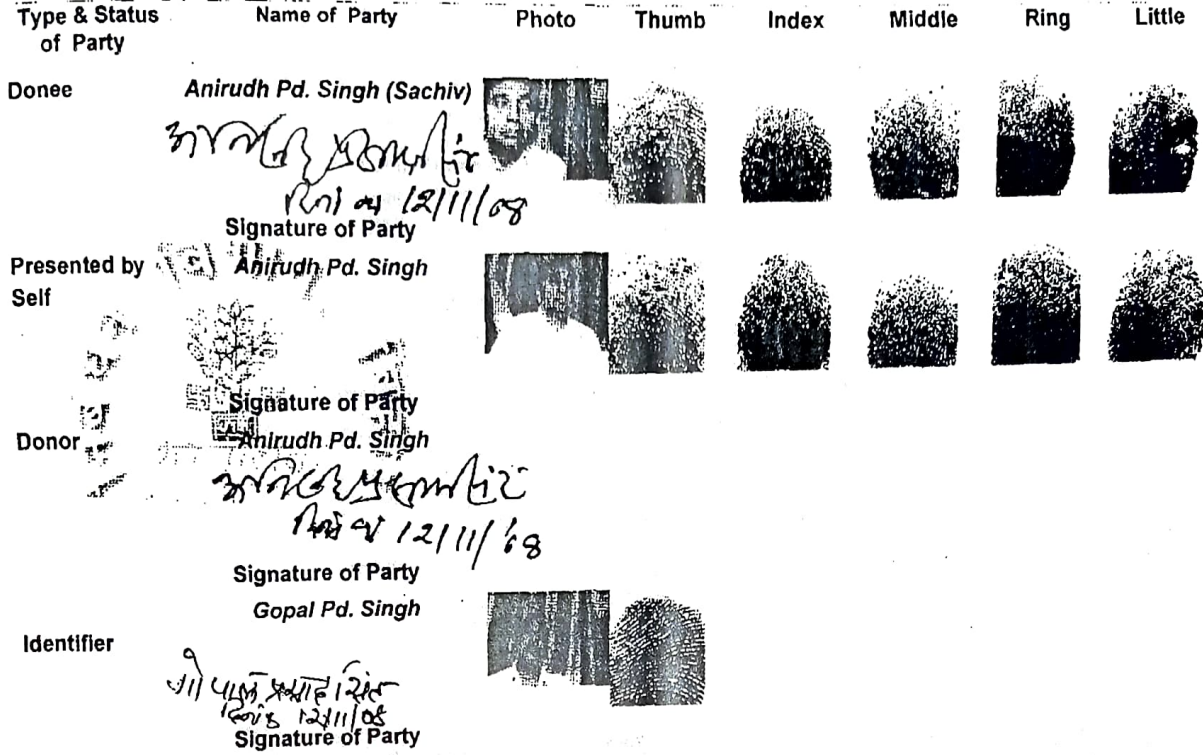 Type & Status of Party Name of Party Photo Thumb Index Middle Ring Little
Donee Anirudh Pd. Singh (Sachiv)
अनिरुद्ध प्रसाद सिंह
दिनांक 12/11/08
Signature of Party
Presented by Self Anirudh Pd. Singh
Signature of Party
Donor Anirudh Pd. Singh
अनिरुद्ध प्रसाद सिंह
दिनांक 12/11/08
Signature of Party
Gopal Pd. Singh
Identifier
गोपाल प्रसाद सिंह
दिनांक 12/11/08
Signature of Party